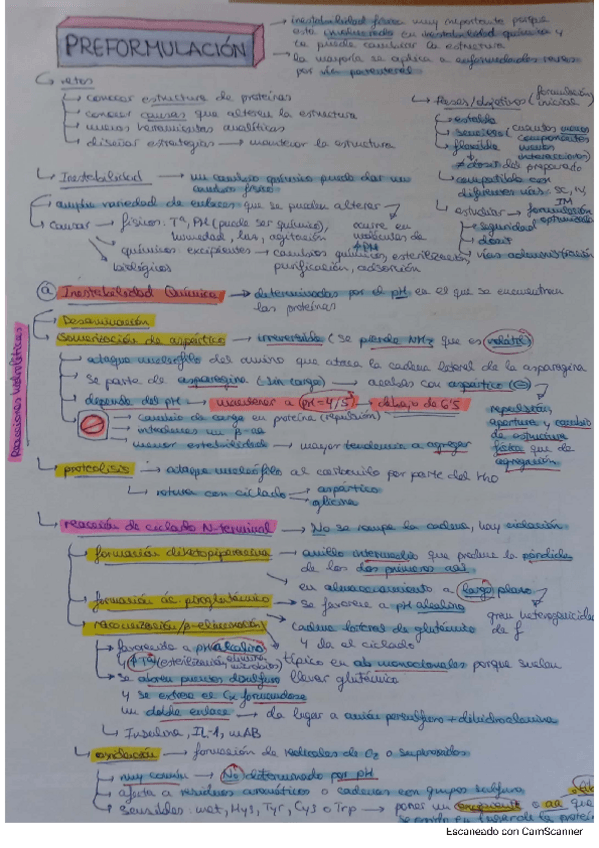 PREFORMULACIÓN
→ inestabilidad física muy importante porque
está involucrada en inestabilidad química y
se puede cambiar la estructura
→ la mayoría se aplica a enfermedades raras
por vía parenteral
↳ retos
→ conocer estructura de proteínas
→ conocer causas que alteren la estructura
→ menos herramientas analíticas
→ diseñar estrategias → mantener la estructura
→ Fases/objetivos (formulación inicial)
→ estable
→ sencillos (cuantos menos componentes menos interacciones)
→ flexible
≠ dosis del preparado
→ compatible con
diferentes vías: SC, IV, IM
→ estudiar → formulación optimizada
→ seguridad
→ dosis
→ vías administración
↳ Inestabilidad → un cambio químico puede dar un
cambio físico
→ amplia variedad de enlaces que se pueden alterar
→ causas → físicos: Tª, PH (puede ser químico),
humedad, luz, agitación
ocurre en
moléculas de
↑PM
químicos: excipientes → cambios químicos, esterilización,
purificación, adsorción
biológicos
a Inestabilidad Química → determinadas por el pH en el que se encuentran
las proteínas
Reacciones hidrolíticas
→ Desaminación
→ Isomerización de aspártico → irreversible (se pierde NH3 que es volátil)
→ ataque nucleófilo del amino que ataca la cadena lateral de la asparagina
→ Se parte de asparagina (sin carga) → acabas con aspártico (⊖)
→ depende del pH → mantener a pH=4/5 → debajo de 6'5
→ cambio de carga en proteína (repulsión)
→ introduces un β-aa
→ menor estabilidad → mayor tendencia a agregar
repulsión,
apertura y cambio
de estructura
física que da
agregación
↳ proteolisis → ataque nucleófilo al carbonilo por parte del H2O
↳ rotura con ciclado → aspártico
→ glicina
↳ reacción de ciclado N-terminal → No se rompe la cadena, hay ciclación
→ formación diketopiperacina → anillo intermedio que produce la pérdida
de los dos primeros aas
en almacenamiento a largo plazo
→ formación ác. piroglutámico → se favorece a pH alcalino
gran heterogeneidad
de f
→ racemización/β-eliminación
cadena lateral de glutámico
y da el ciclado
→ favorecida a pH alcalino
y ↑Tª (esterilización
típico en ab monoclonales porque suelen
llevar glutámico
→ Se abren puentes disulfuro
y se extrae el Cα formándose
un doble enlace → da lugar a anión persulfuro + dihidroalanina
↳ Insulina, IL-1, mAB
↳ oxidación → formación de radicales de O2 o superóxidos
→ muy común → No determinado por pH
→ afecta a residuos aromáticos o cadenas con grupos sulfuro
→ Sensibles: Met, Hys, Tyr, Cys o Trp → poner un excipiente o aa que
Escaneado con CamScanner